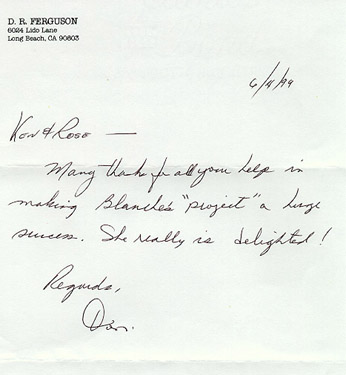 D. R. FERGUSON
6024 Lido Lane
Long Beach, CA 90803
6/11/99
Ken & Rose —
Many thanks for all your help in
making Blanche's "project" a huge
success. She really is delighted!
Regards,
Don.